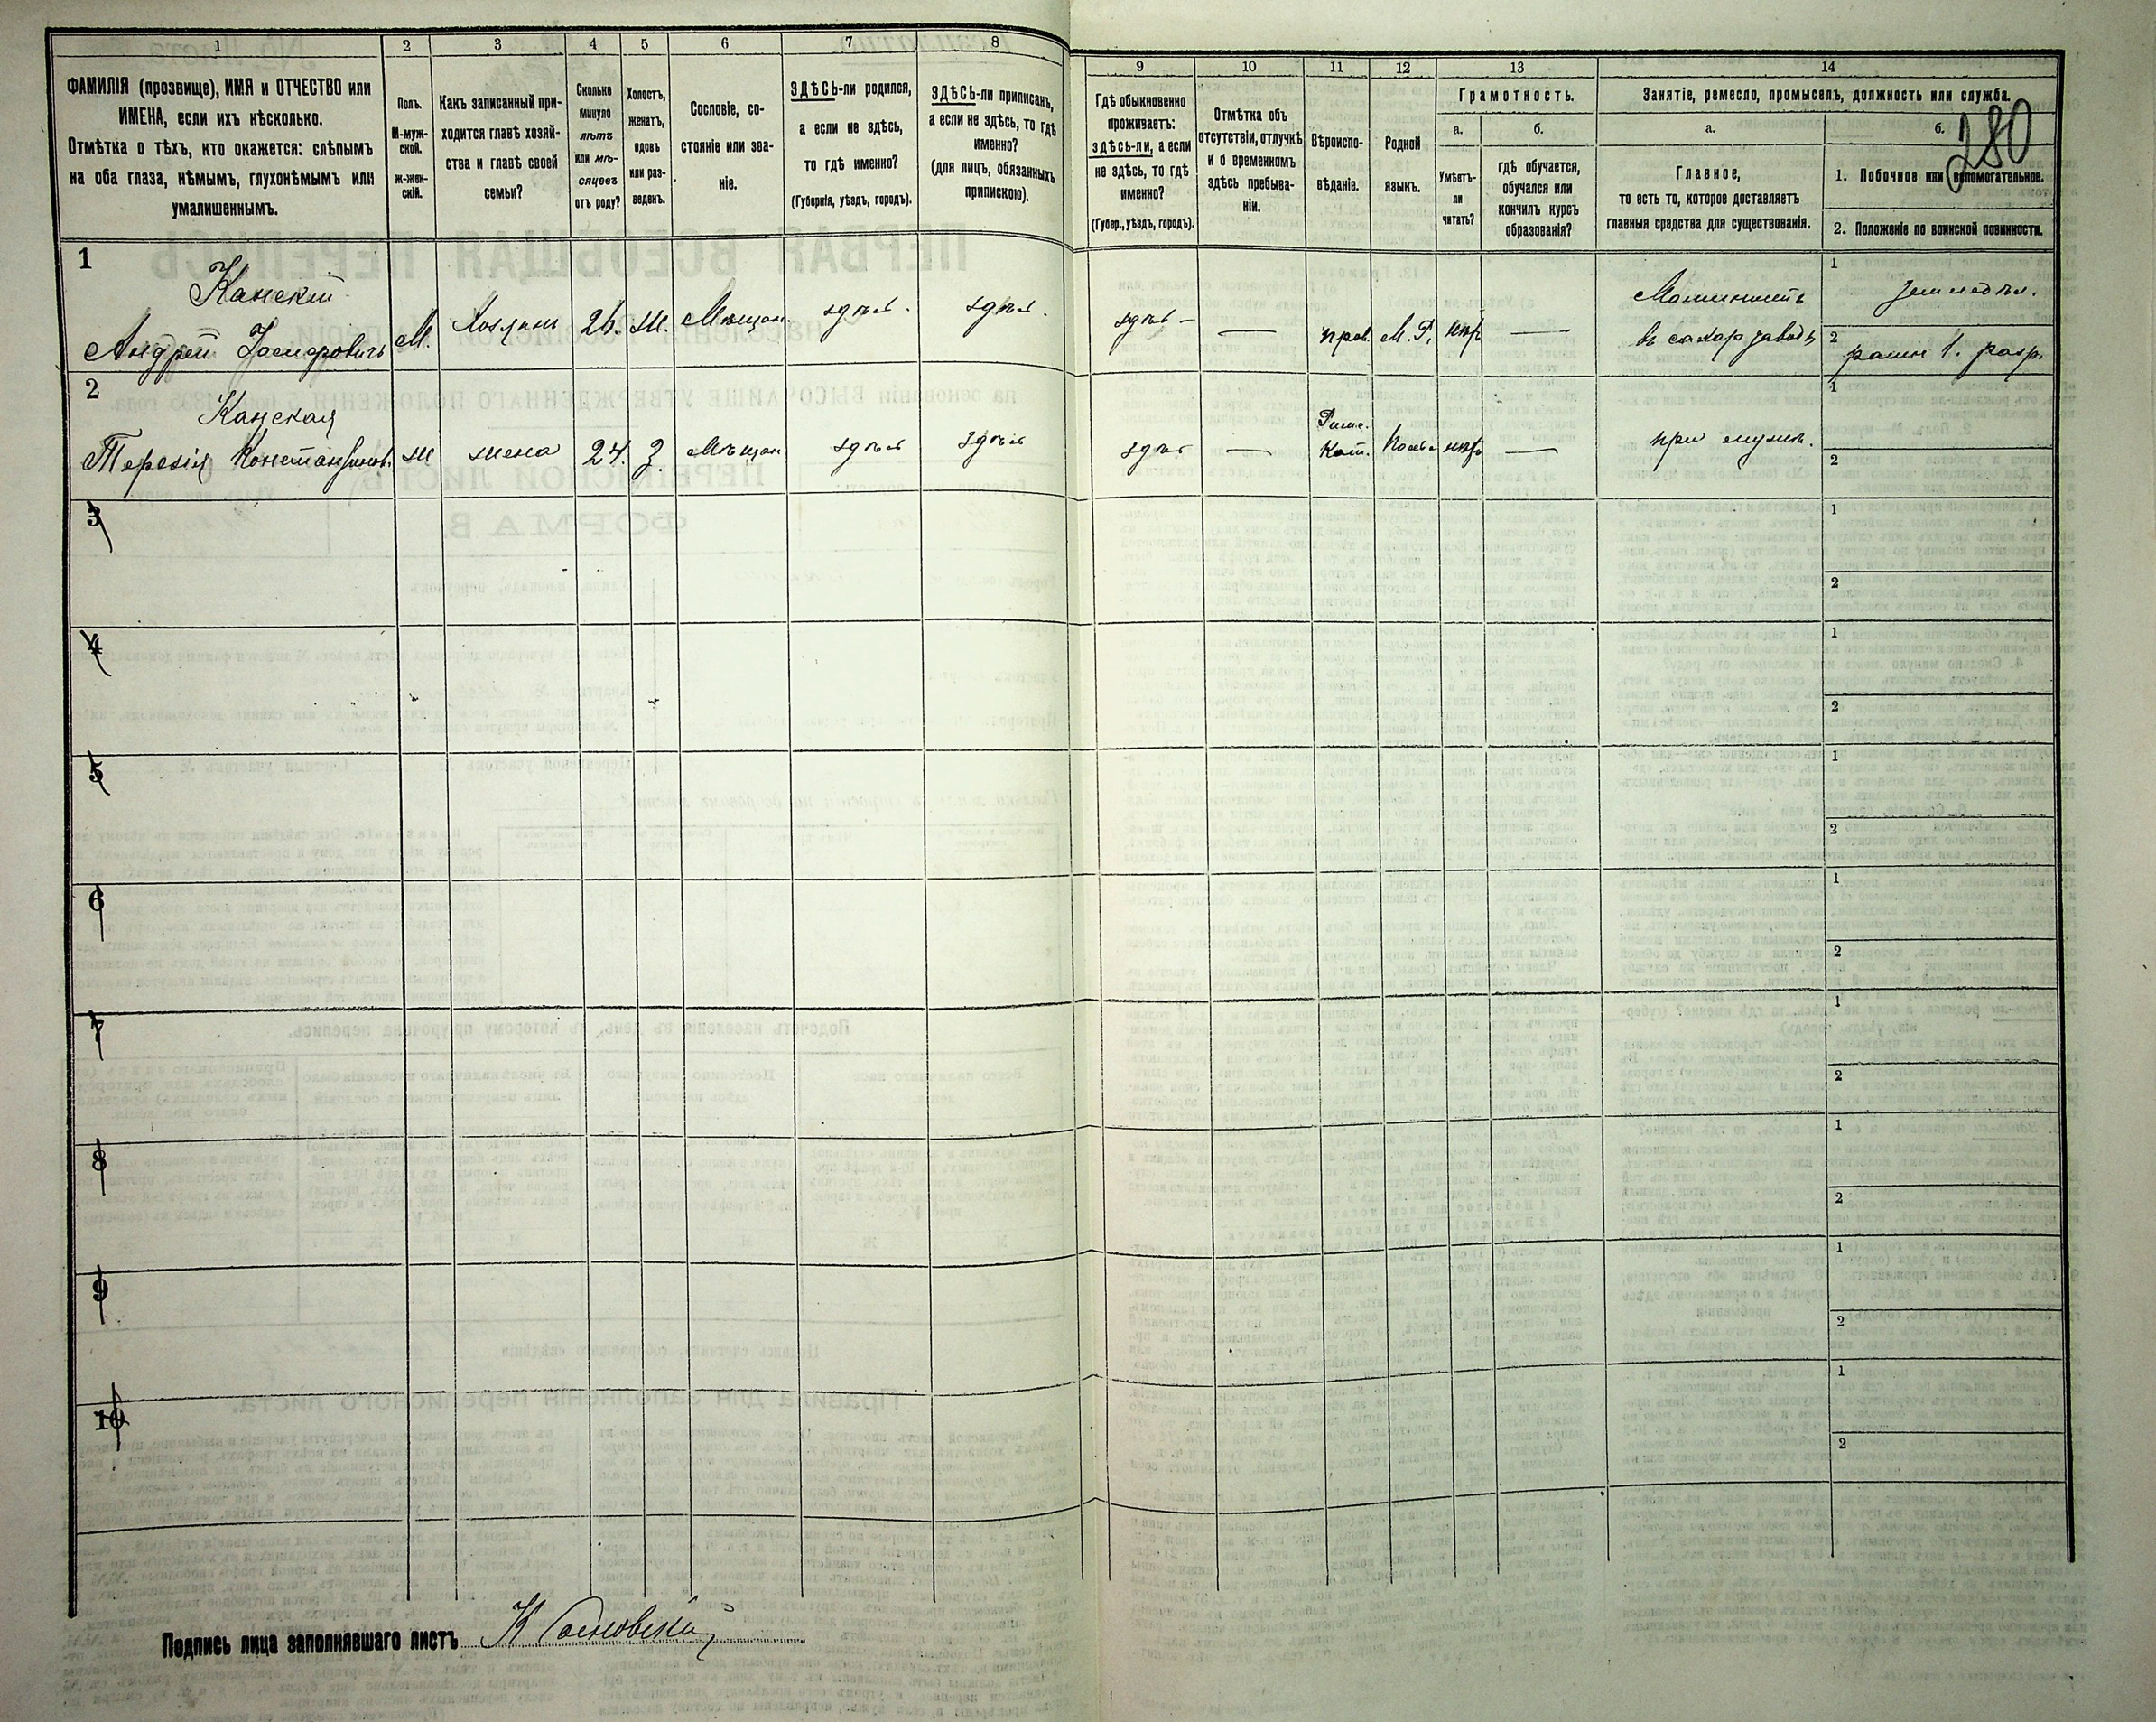 1 2 3 4 5 6 7 8 9 10 11 12 13 14
ФАМИЛІЯ (прозвище), ИМЯ и ОТЧЕСТВО или
ИМЕНА, если ихъ нѣсколько.
Отмѣтка о тѣхъ, кто окажется: слѣпымъ
на оба глаза, нѣмымъ, глухонѣмымъ или
умалишеннымъ.
Полъ.
М-муж-
ской.
Ж-жен-
скій.
Какъ записанный при-
ходится главѣ хозяй-
ства и главѣ своей
семьи?
Сколько
минуло
лѣтъ
или мѣ-
сяцевъ
отъ роду?
Холостъ,
женатъ,
вдовъ
или раз-
веденъ.
Сословіе, со-
стояніе или зва-
ніе.
ЗДѢСЬ-ли родился,
а если не здѣсь,
то гдѣ именно?
(Губернія, уѣздъ, городъ).
ЗДѢСЬ-ли приписанъ,
а если не здѣсь, то гдѣ
именно?
(для лицъ, обязанныхъ
припискою).
Гдѣ обыкновенно
проживаетъ:
здѣсь-ли, а если
не здѣсь, то гдѣ
именно?
(Губер., уѣздъ, городъ).
Отмѣтка объ
отсутствіи, отлучкѣ
и о временномъ
здѣсь пребыва-
ніи.
Вѣроиспо-
вѣданіе.
Родной
языкъ.
Грамотность.
а.
Умѣетъ-
ли
читать?
б.
гдѣ обучается,
обучался или
кончилъ курсъ
образованія?
Занятіе, ремесло, промыселъ, должность или служба.
а.
Главное,
то есть то, которое доставляетъ
главныя средства для существованія.
б.
280
1. Побочное или вспомогательное.
2. Положеніе по воинской повинности.
1
Канскій
Андрей Іосифовичъ
М.
Хозяинъ
26.
ж.
Мѣщан.
здѣсь.
здѣсь.
здѣсь
—
прав.
М. Р.
нѣтъ
—
Машинистъ
въ сахар заводѣ
1
земледѣл.
2
ратн 1. разр.
2
Канская
Терезія Константинов.
ж
жена
24.
З.
Мѣщан
здѣсь
здѣсь
здѣсь
—
Римс.
Кат.
Польс
нѣтъ
—
при мужѣ.
1
2
3
1
2
4
1
2
5
1
2
6
1
2
7
1
2
8
1
2
9
1
2
10
1
2
Подпись лица заполнявшаго листъ К Сосновскій